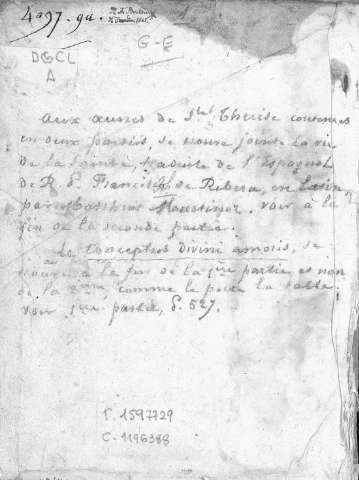 4097. ga.
G-E
DGCL
A
Aux œuvres de Ste Thérèse contenues
en deux parties, se trouve jointe la vie
de la Sainte, traduite de l'Espagnol
de R. P. Francisco de Ribera, en Latin
par Matthias Martinez. voir à la
fin de la seconde partie.
Le Conceptus divini amoris, se
trouve à la fin de la 1ère partie et non
de la 2ème comme le porte la table.
voir 1ère partie, p. 527.
T. 1597729
C. 1196388